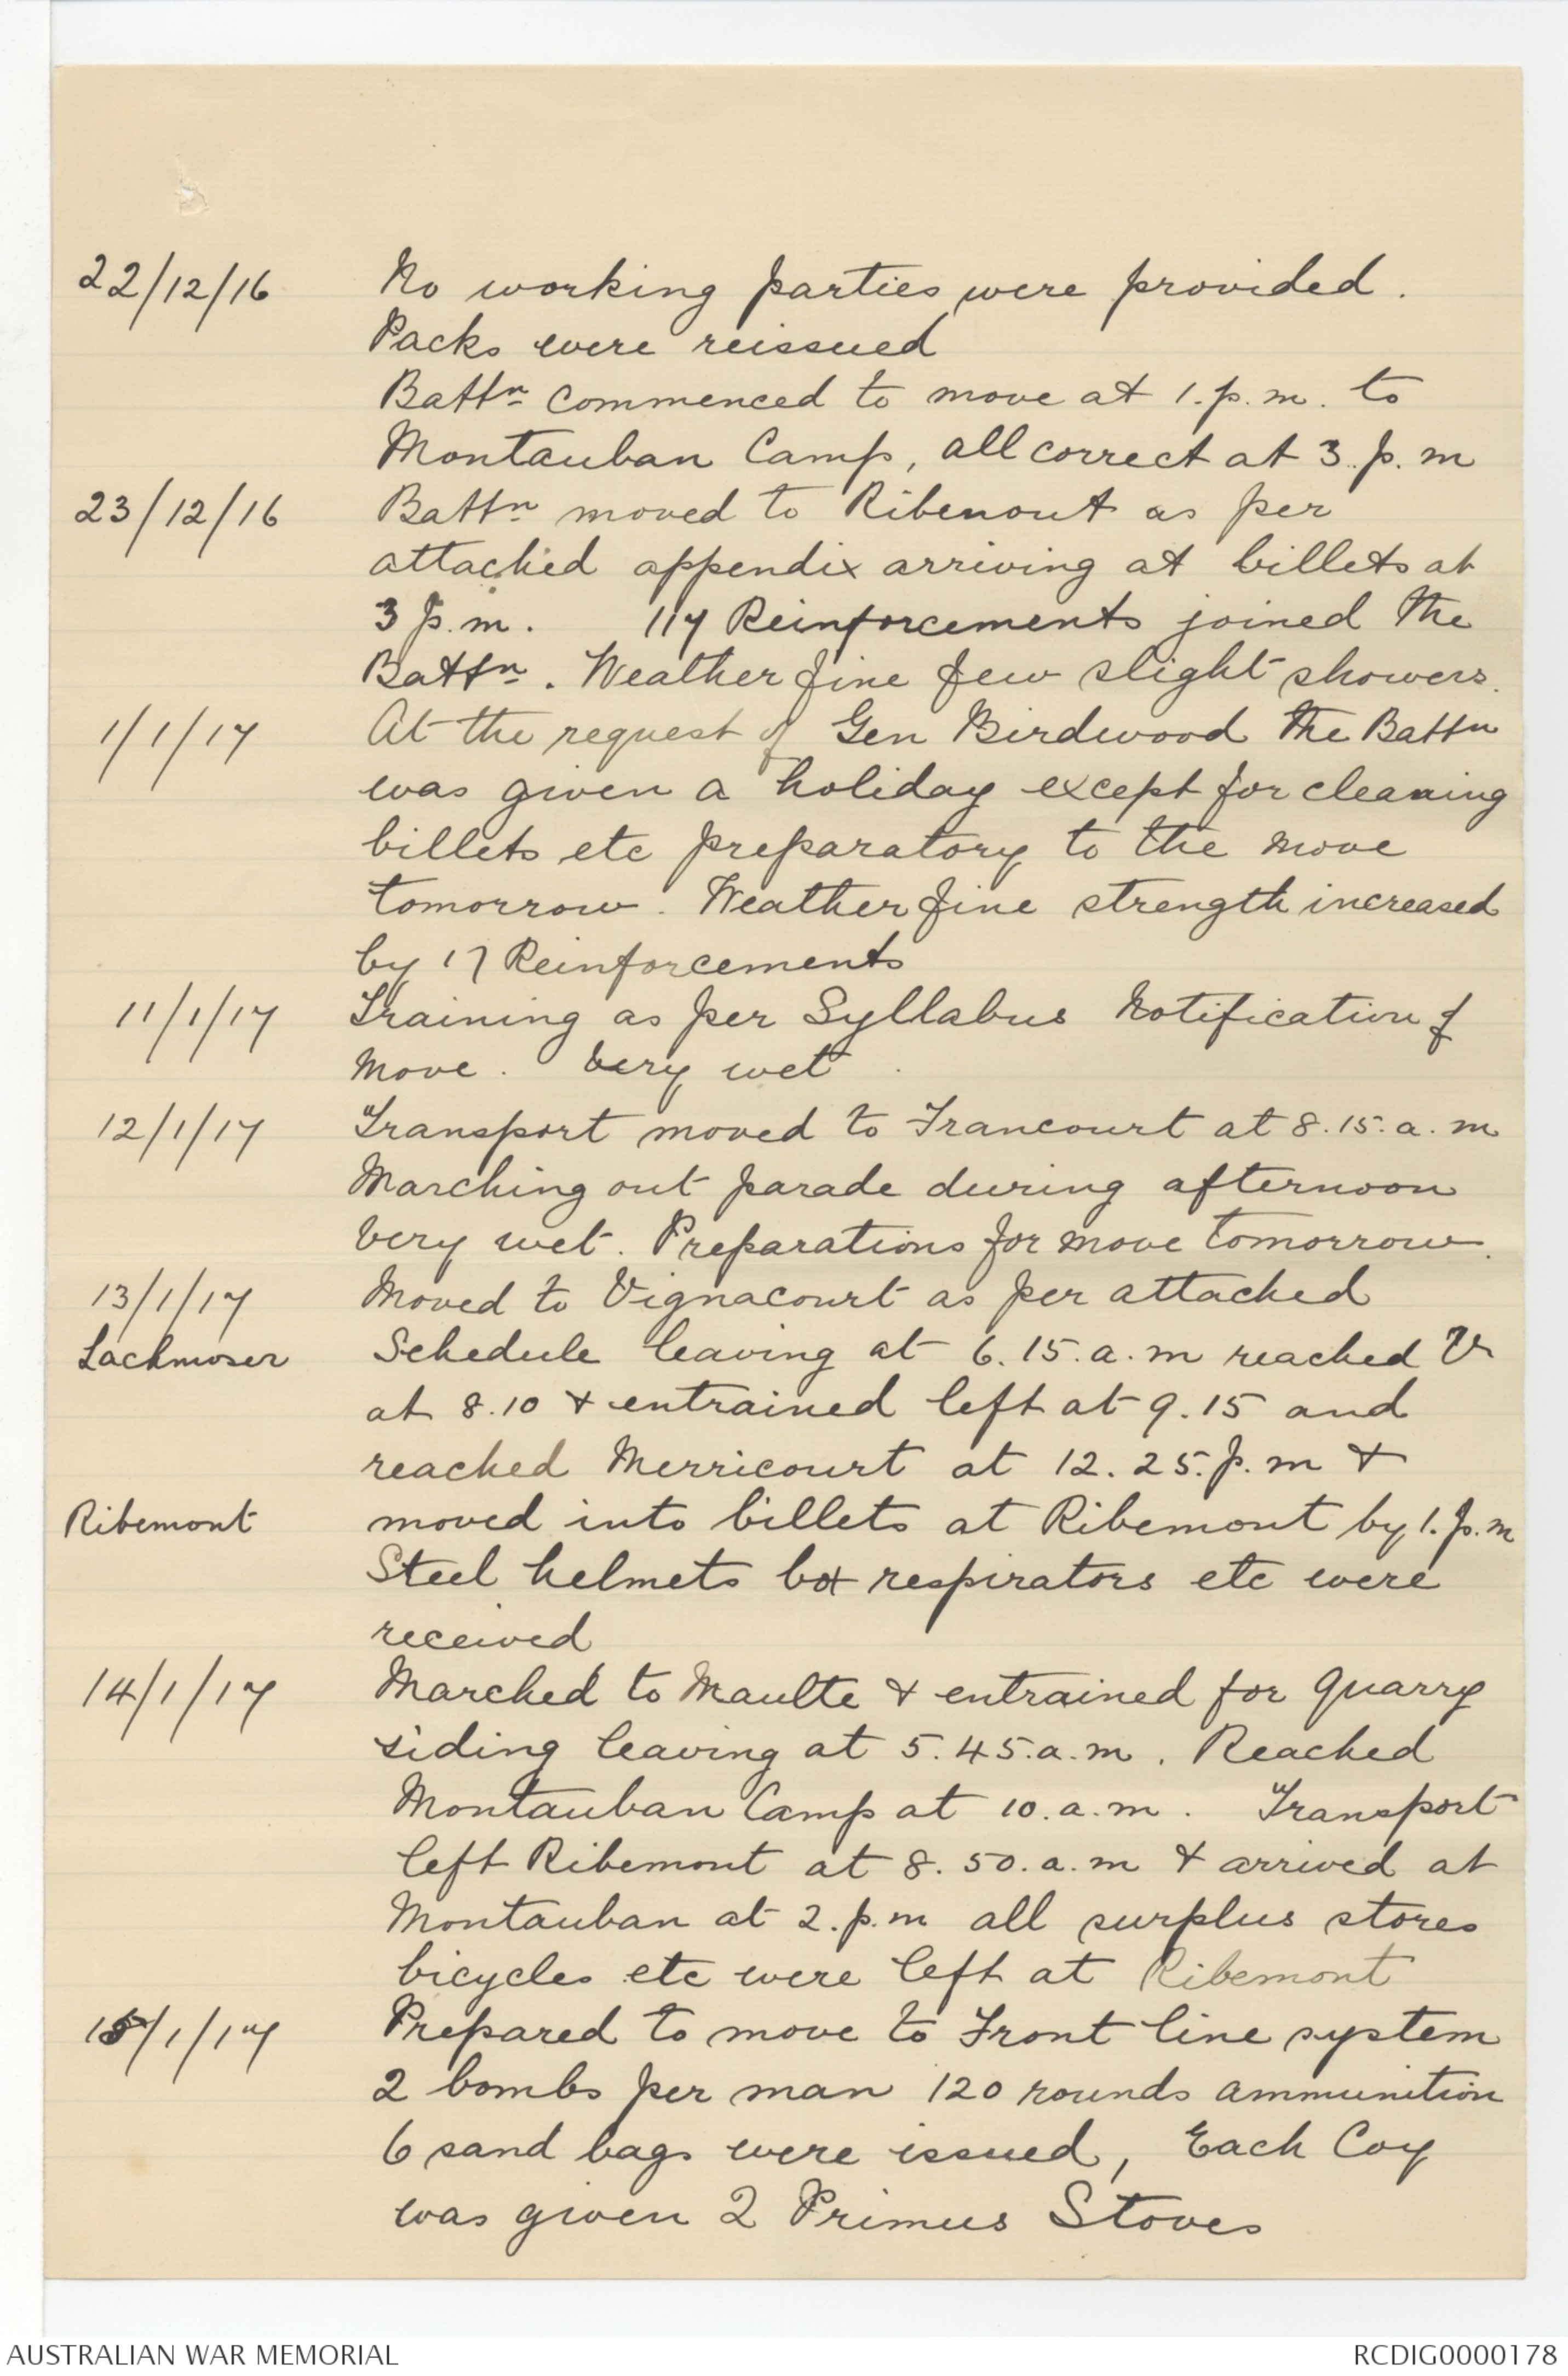 22/12/16 No working parties were provided.
Packs were reissued
Battn commenced to move at 1.p.m. to
Montauban Camp, all correct at 3.p.m
23/12/16 Battn moved to Ribemont as per
attached appendix arriving at billets at
3 p.m. 117 Reinforcements joined the
Battn. Weather fine few slight showers.
1/1/17 At the request of Gen Birdwood the Battn
was given a holiday except for cleaning
billets etc preparatory to the move
tomorrow. Weather fine strength increased
by 17 Reinforcements
11/1/17 Training as per Syllabus Notification of
move. Very wet
12/1/17 Transport moved to Francourt at 8.15.a.m
Marching out parade during afternoon
very wet. Preparations for move tomorrow.
13/1/17 Moved to Vignacourt as per attached
Lachmoser Schedule leaving at 6.15.a.m reached V
at 8.10 & entrained left at 9.15 and
reached Merricourt at 12.25.p.m &
Ribemont moved into billets at Ribemont by 1.p.m
Steel helmets box respirators etc were
received
14/1/17 Marched to Maulte & entrained for Quarry
siding leaving at 5.45.a.m. Reached
Montauban Camp at 10.a.m. Transport
left Ribemont at 8.50.a.m & arrived at
Montauban at 2.p.m all surplus stores
bicycles etc were left at Ribemont
15/1/17 Prepared to move to Front line system
2 bombs per man 120 rounds ammunition
6 sand bags were issued, Each Coy
was given 2 Primus Stoves
AUSTRALIAN WAR MEMORIAL RCDIG0000178